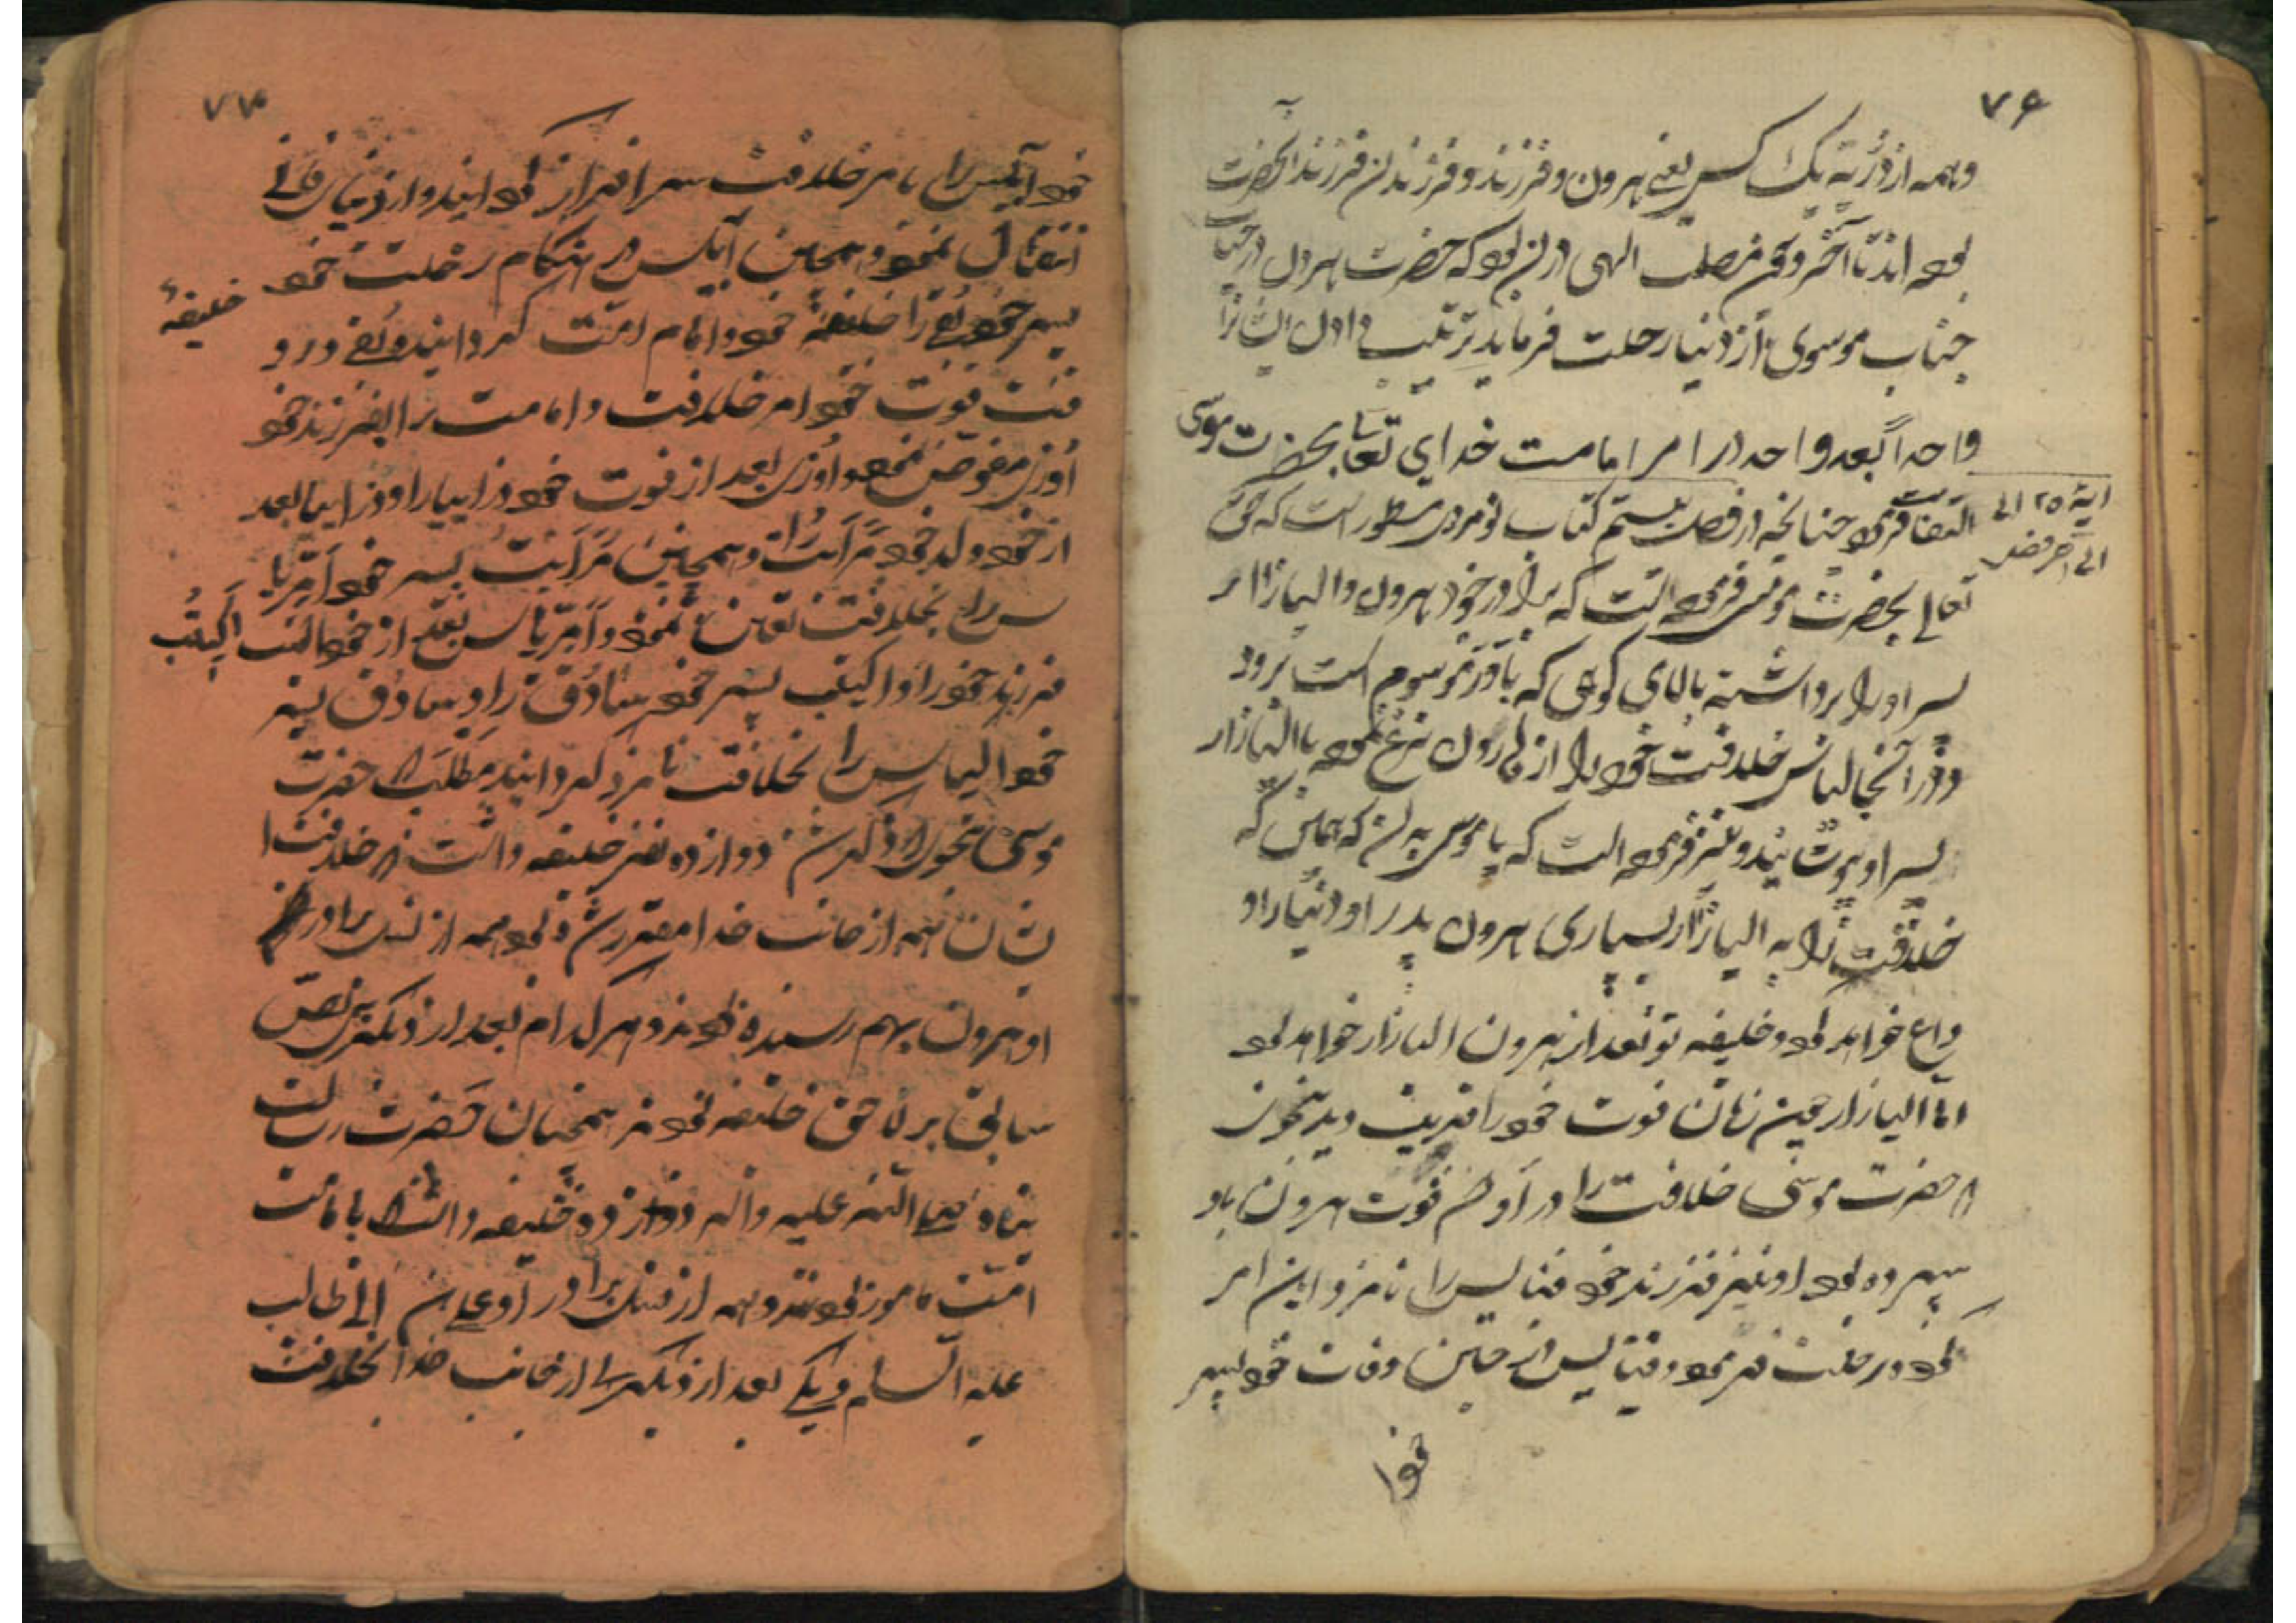 ۷۶
وهمه از ذریه یک کس یعنی هرون و فرزند و فرزندان فرزند آنحضرت
بوده اند تا آخر و چون مصلحت الهی در آن بود که حضرت هرون در حیات
جناب موسوی از دنیا رحلت فرماید ترتیب و اول ایشانرا
واحداً بعد واحد در امر امامت خدای تعالی بحضرت موسی
القا فرمود چنانچه در فصل بیستم کتاب نومرد مسطور است که حق
آیه ۲۵ الی
الی آخر فصل
تعالی بحضرت موسی فرموده است که برادر خود هرون و الیازار
پسر او را برداشته بالای کوهی که باور موسوم است برود
و در آنجا لباس خلافت خود را از هارون نزع نموده با الیازار
پسر او بپوشاند و نیز فرموده است که یا موسی بدان که همین که
خلافت را به الیازار بسپاری هرون پدر او دنیا را و
داع خواهد بود و خلیفه تو بعد از هرون الیازار خواهد بود
اما الیازار چون زمان فوت خود را قریب دید بنحوی
که حضرت موسی خلافت را در آوان فوت هرون باو
سپرده بود او نیز فرزند خود فینالیس را نامزد این امر
نمود و رحلت فرمود و فینالیس در حین وفات خود پسر
خود
۷۷
خود آبیس را بامر خلافت سرافراز گردانید و از دنیای فانی
انتقال نمود و همچنین آبیس در هنگام رحلت خود
پسر خود بقی را خلیفه خود و امام امت گردانید و بقی در و
خلیفهٔ
قت فوت خود امر خلافت و امامت را بفرزند خود
اوزی مفوض نمود و اوزی بعد از فوت خود زراییا را و زراییا بعد
از خود ولد خود مرایت را و همچنین مرایت پسر خود امریا
س را بخلافت تعیین نمود و امریاس بعد از خود اکیتب
فرزند خود را و اکیتب پسر خود سادوق را و سادوق پسر
خود الیماس را بخلافت نامزد گردانید مطلب که حضرت
موسی بنحوی که ذکر شد دوازده نفر خلیفه داشت که خلافت ا
یشان همه از جانب خدا مقرر شده بود همه از نسل برادر
او هرون بهم رسیده بودند و هر کدام بعد از دیگری بنص
سابق بر لاحق خلیفه بودند همچنان حضرت رسالت
پناه صلی الله علیه و آله دوازده خلیفه داشت که بامامت
امت مامور بودند و همه از نسل برادر او علی بن ابی طالب
علیه السلام و یکی بعد از دیگری از جانب خدا بخلافت